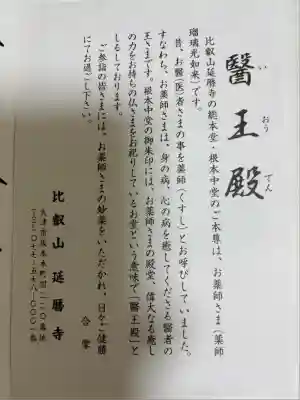 醫王殿
いおうでん
比叡山延暦寺の総本堂・根本中堂のご本尊は、お薬師さま(薬師
瑠璃光如来)です。
昔、お醫(医)者さまの事を薬師(くすし)とお呼びしていました。
すなわち、お薬師さまは、身の病、心の病を癒してくださる醫者の
王さまです。根本中堂の御朱印には、お薬師さまの殿堂、偉大なる癒し
の力をお持ちの仏さまをお祀りしているお堂という意味で「醫王殿」と
しるしております。
ご参詣の皆さまには、お薬師さまの妙薬をいただかれ、日々ご健勝
にてお過ごし下さい。
合掌
比叡山延暦寺
大津市坂本本町四二二〇番地